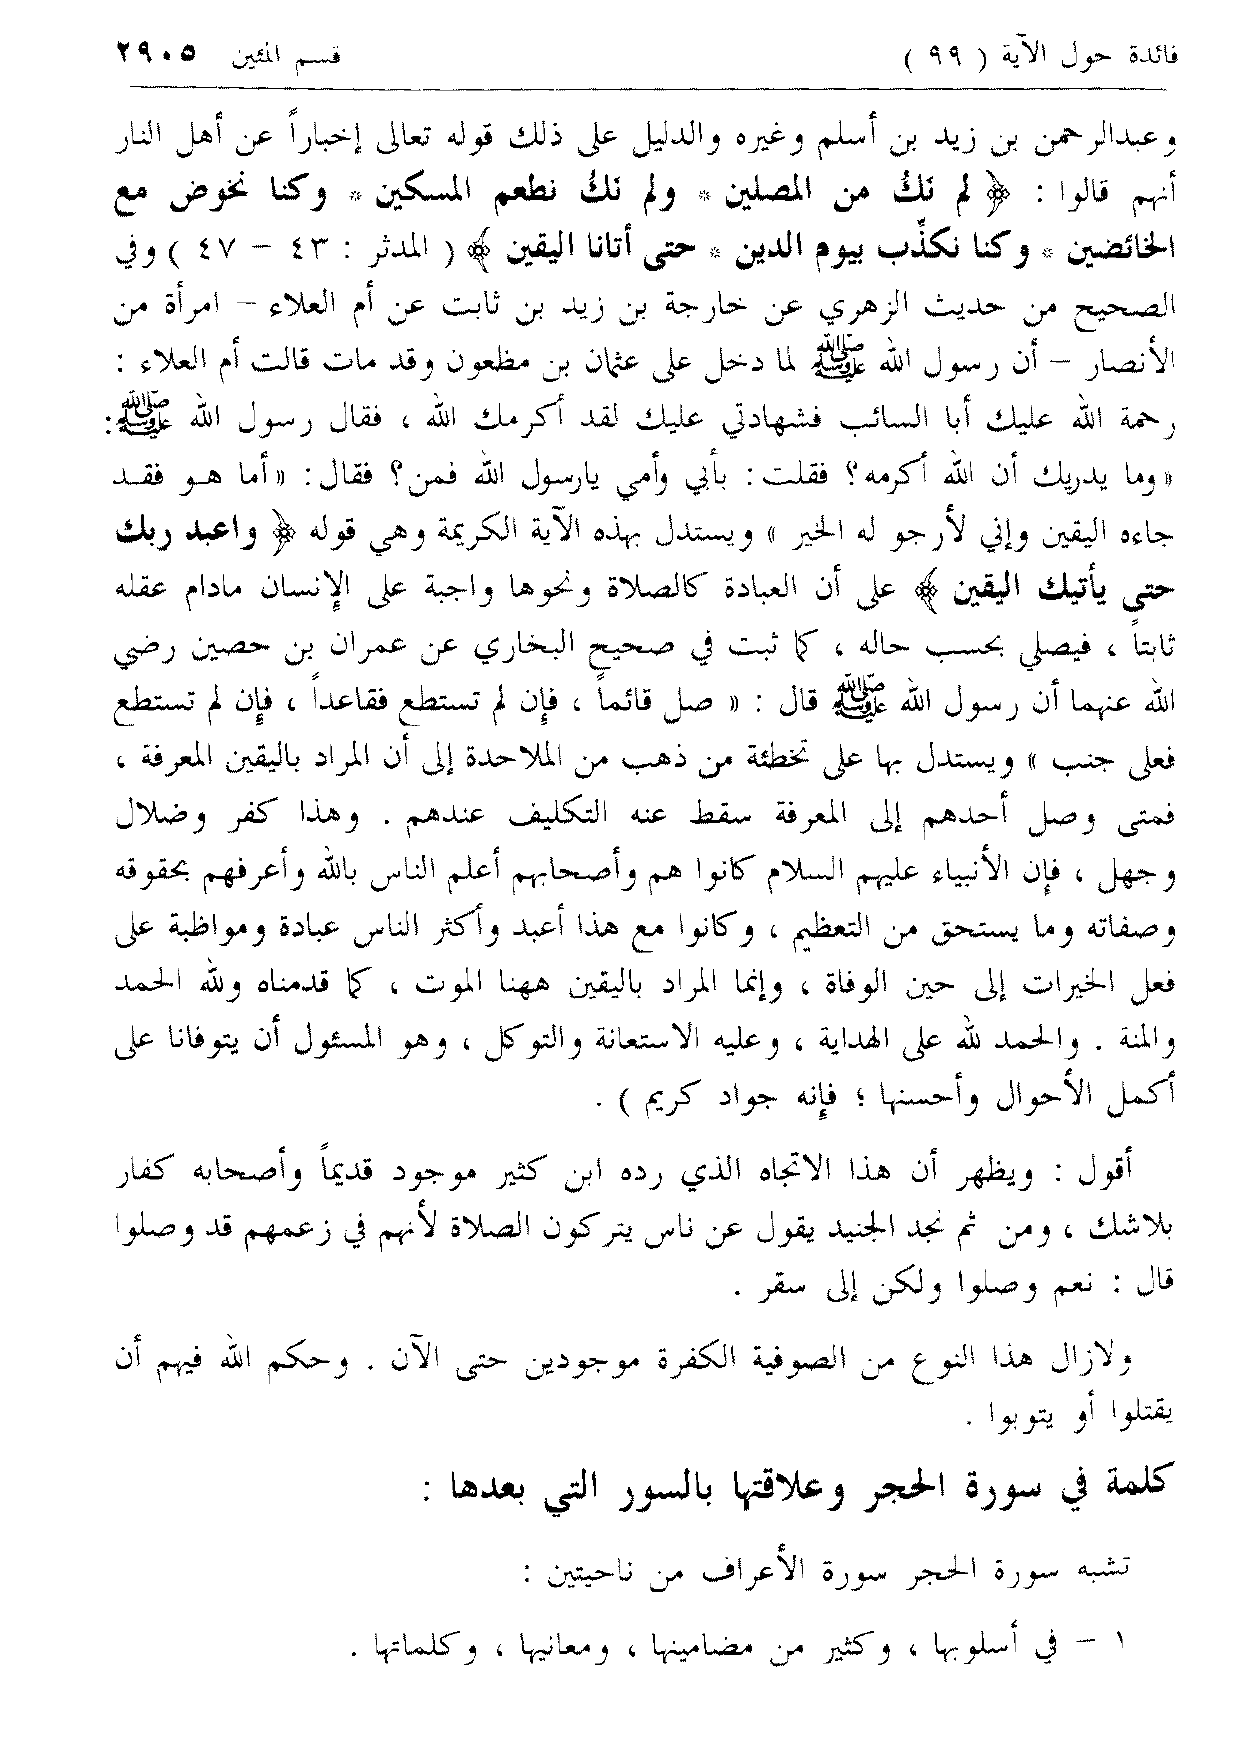 فائدة حول الآية ( ٩٩ ) قسم المئين ٢٩٠٥
وعبدالرحمن بن زيد بن أسلم وغيره والدليل على ذلك قوله تعالى إخباراً عن أهل النار
أنهم قالوا : ﴿ لم نَكُ من المصلين * ولم نَكُ نطعم المسكين * وكنا نخوض مع
الخائضين * وكنا نكذّب بيوم الدين * حتى أتانا اليقين ﴾ ( المدثر : ٤٣ – ٤٧ ) وفي
الصحيح من حديث الزهري عن خارجة بن زيد بن ثابت عن أم العلاء – امرأة من
الأنصار – أن رسول الله ﷺ لما دخل على عثمان بن مظعون وقد مات قالت أم العلاء :
رحمة الله عليك أبا السائب فشهادتي عليك لقد أكرمك الله ، فقال رسول الله ﷺ:
« وما يدريك أن الله أكرمه ؟ فقلت : بأبي وأمي يارسول الله فمن ؟ فقال : « أما هو فقد
جاءه اليقين وإني لأرجو له الخير » ويستدل بهذه الآية الكريمة وهي قوله ﴿ واعبد ربك
حتى يأتيك اليقين ﴾ على أن العبادة كالصلاة ونحوها واجبة على الإنسان مادام عقله
ثابتاً ، فيصلي بحسب حاله ، كما ثبت في صحيح البخاري عن عمران بن حصين رضي
الله عنهما أن رسول الله ﷺ قال : « صل قائماً ، فإن لم تستطع فقاعداً ، فإن لم تستطع
فعلى جنب » ويستدل بها على تخطئة من ذهب من الملاحدة إلى أن المراد باليقين المعرفة ،
فمتى وصل أحدهم إلى المعرفة سقط عنه التكليف عندهم . وهذا كفر وضلال
وجهل ، فإن الأنبياء عليهم السلام كانوا هم وأصحابهم أعلم الناس بالله وأعرفهم بحقوقه
وصفاته وما يستحق من التعظيم ، وكانوا مع هذا أعبد وأكثر الناس عبادة ومواظبة على
فعل الخيرات إلى حين الوفاة ، وإنما المراد باليقين ههنا الموت ، كما قدمناه ولله الحمد
والمنة . والحمد لله على الهداية ، وعليه الاستعانة والتوكل ، وهو المسئول أن يتوفانا على
أكمل الأحوال وأحسنها ؛ فإنه جواد كريم ) .
أقول : ويظهر أن هذا الاتجاه الذي رده ابن كثير موجود قديماً وأصحابه كفار
بلاشك ، ومن ثم نجد الجنيد يقول عن ناس يتركون الصلاة لأنهم في زعمهم قد وصلوا
قال : نعم وصلوا ولكن إلى سقر .
ولازال هذا النوع من الصوفية الكفرة موجودين حتى الآن . وحكم الله فيهم أن
يقتلوا أو يتوبوا .
كلمة في سورة الحجر وعلاقتها بالسور التي بعدها :
تشبه سورة الحجر سورة الأعراف من ناحيتين :
١ – في أسلوبها ، وكثير من مضامينها ، ومعانيها ، وكلماتها .